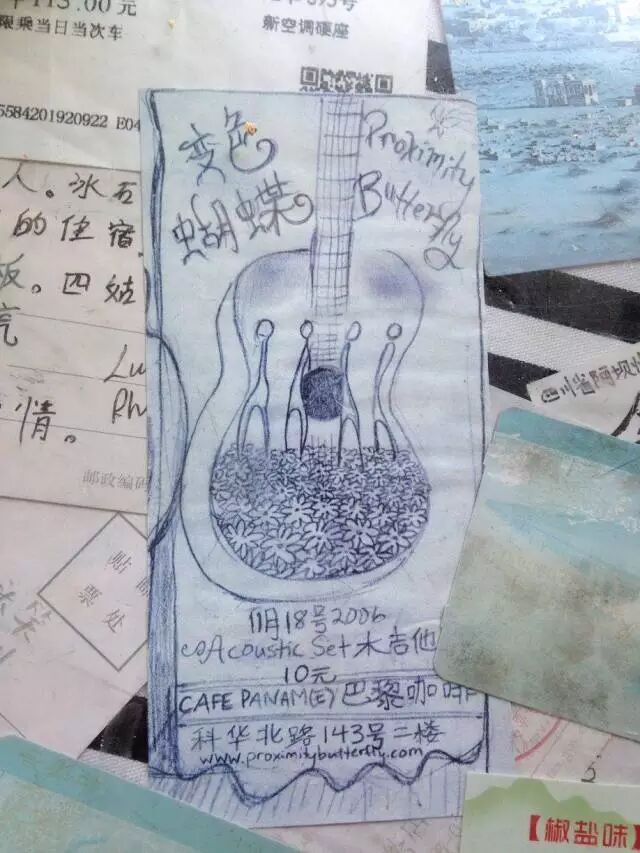 ¥113.00元
限乘当日当次车
新空调硬座
5584201920922 E04
人。冰石
的住宿
板。四姑
Lu
Ph
情。
邮政编码
贴邮
票处
变色
蝴蝶
Proximity
Butterfly
11月18号2006
Acoustic Set 木吉他
10元
CAFE PANAM(E) 巴黎咖啡
科华北路143号二楼
www.proximitybutterfly.com
四川省阿坝
【椒盐味】